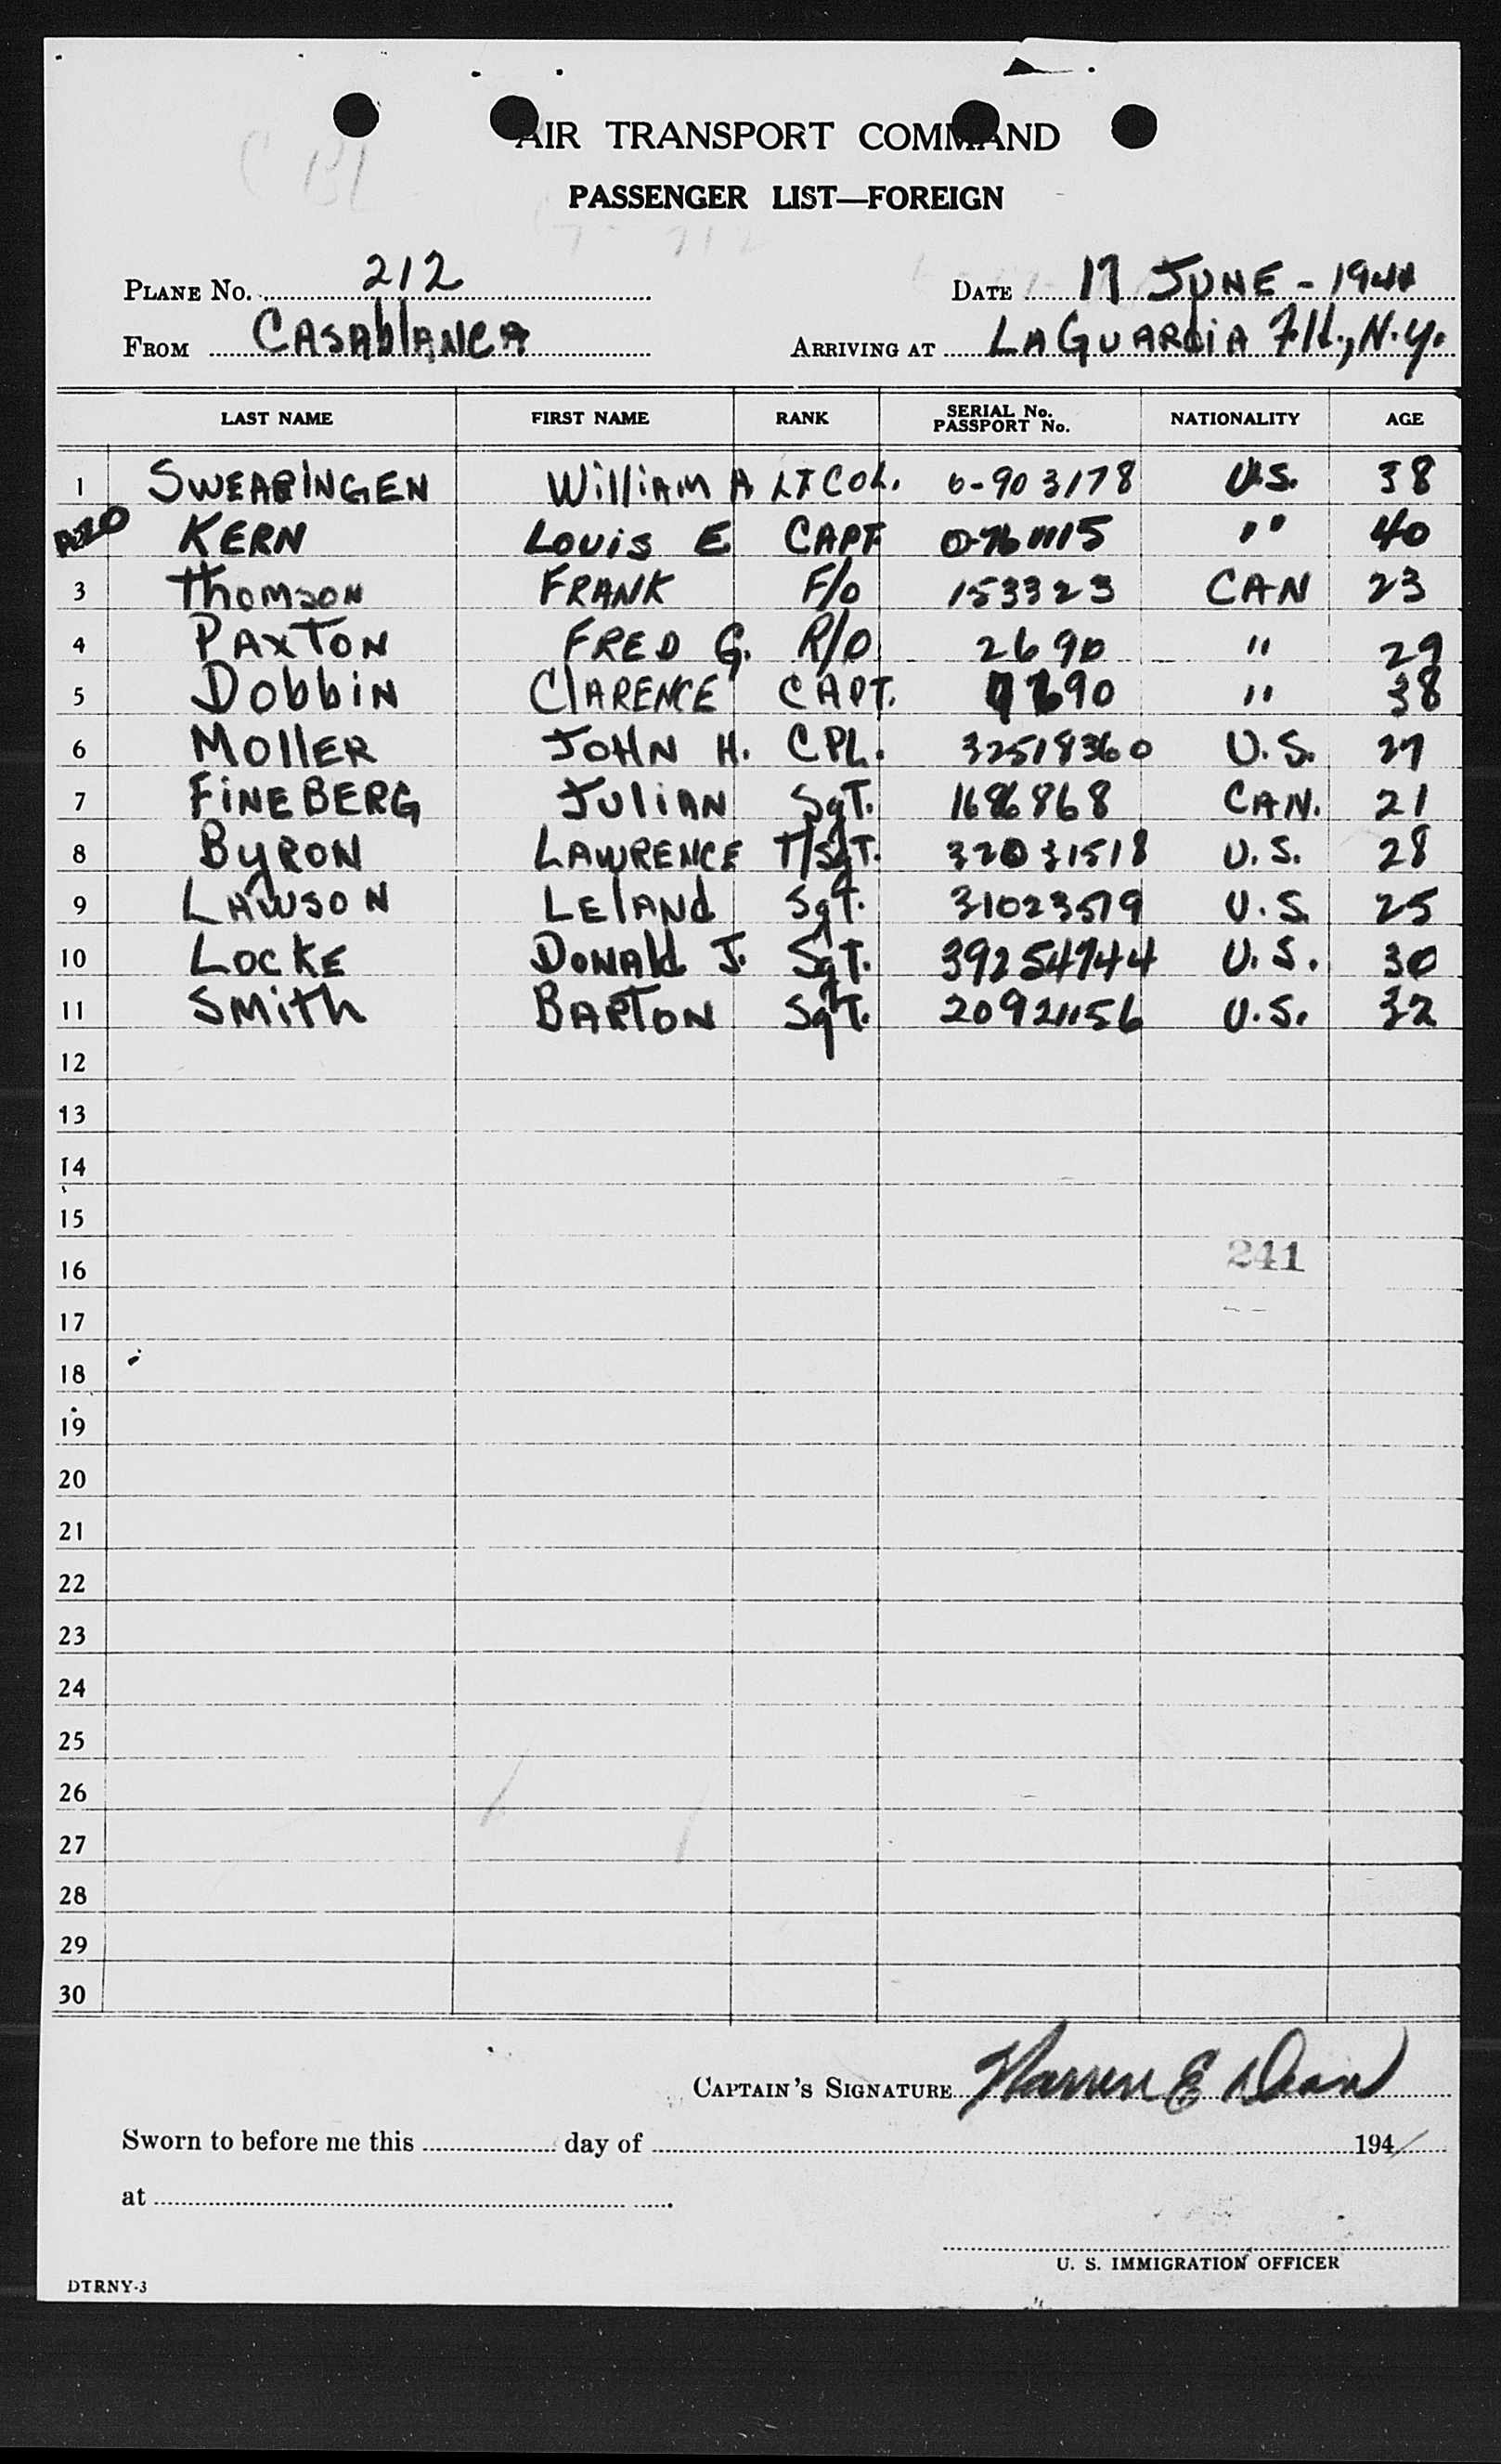 AIR TRANSPORT COMMAND
PASSENGER LIST—FOREIGN
PLANE No. 212 DATE 17 JUNE - 1944
FROM CASAblANCA ARRIVING AT LAGUARdiA Fld., N.Y.
LAST NAME FIRST NAME RANK SERIAL No. PASSPORT No. NATIONALITY AGE
1 SWEARINGEN WilliAM A LT COL. 0-903178 U.S. 38
KERN Louis E. CAPT. " 40
3 ThomsoN FRANK F/O 153323 CAN 23
4 PAXTON FRED G. R/O 2690 " 29
5 DobbiN ClARENCE CAPT. " 38
6 MOllER JOHN H. CPL. 32518360 U.S. 27
7 FiNEBERG JuliAN SgT. CAN. 21
8 ByRON LAWRENCE T/SgT. 32031518 U.S. 28
9 LAWSON LElANd SgT. 31023579 U.S. 25
10 LOCKE DONAld J. SgT. 39254744 U.S. 30
11 SMith BARTON SgT. 20921156 U.S. 32
12
13
14
15
241
16
17
18
19
20
21
22
23
24
25
26
27
28
29
30
CAPTAIN'S SIGNATURE Warren E Dean
Sworn to before me this day of 194
at
U. S. IMMIGRATION OFFICER
DTRNY-3